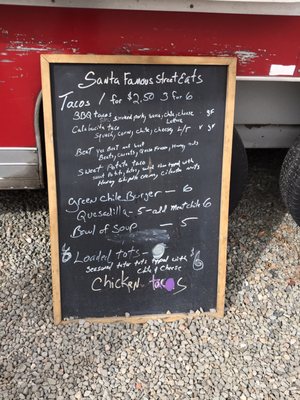 Santa Famous Street Eats
Tacos 1 for $2.50 3 for 6
BBQ tacos smoked pork, slaw, chile, cheese gf
Calabacita taco
Squash, corn, chile, cheese v gf
Beet
Beets, carrots, honey nuts
Sweet Potato taco
Sweet Potato, topped with
Honey chipotle creamy nuts
Green Chile Burger - 6
Quesadilla - 5 - add meat chile 6
Bowl of Soup 5
6 Loaded tots -
Seasoned tater tots topped with
Chile & Cheese
Chicken tacos